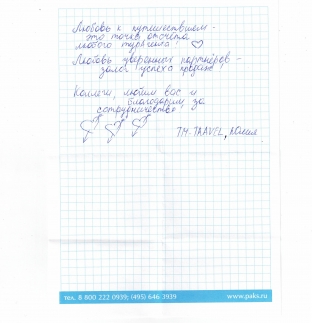 Любовь к путешествиям -
это точка отсчета
любого турагента!
Любовь уверенных партнёров -
залог успеха продаж!
Коллеги, любим вас и
благодарим за
сотрудничество!
TM-TRAVEL, Юлия
тел. 8 800 222 0939; (495) 646 3939
www.paks.ru